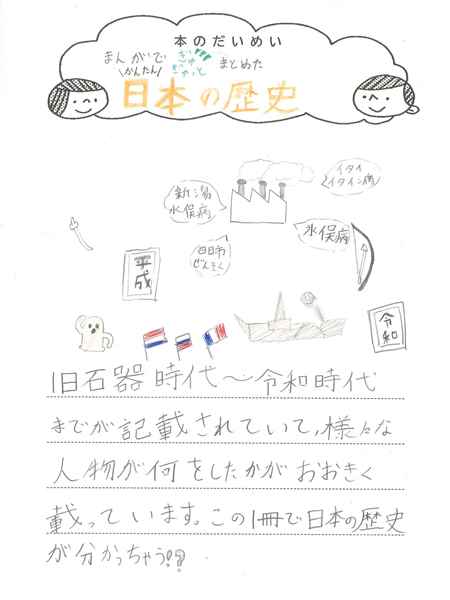 本のだいめい
まんがで ぎゅぎゅっと まとめた
\かんたん/
日本の歴史
イタイイタイ病
新潟水俣病
水俣病
四日市ぜんそく
平成
令和
旧石器時代〜令和時代
までが記載されていて、様々な
人物が何をしたかがおおきく
載っています。この1冊で日本の歴史
が分かっちゃう!?